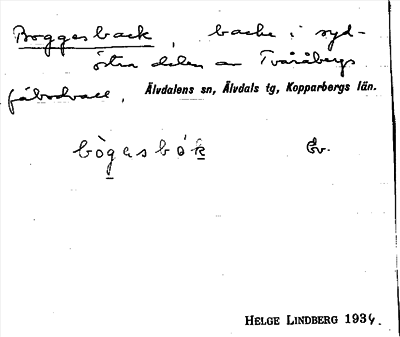 Boggasback, backe i syd-
östra delen av Tvåråbergs
fäbodvall, Älvdalens sn, Älvdals tg, Kopparbergs län.
bògasbók Ev.
HELGE LINDBERG 1934.